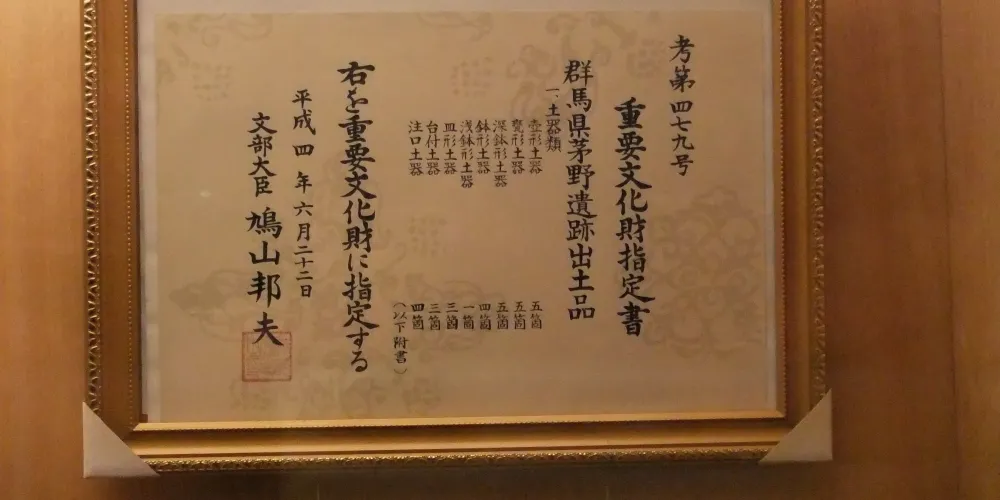 考第四七九号
重要文化財指定書
群馬県茅野遺跡出土品
一、土器類
壺形土器 五箇
甕形土器 五箇
深鉢形土器 五箇
鉢形土器 四箇
浅鉢形土器 一箇
皿形土器 三箇
台付土器 三箇
注口土器 四箇
（以下附書）
右を重要文化財に指定する
平成四年六月二十二日
文部大臣 鳩山邦夫